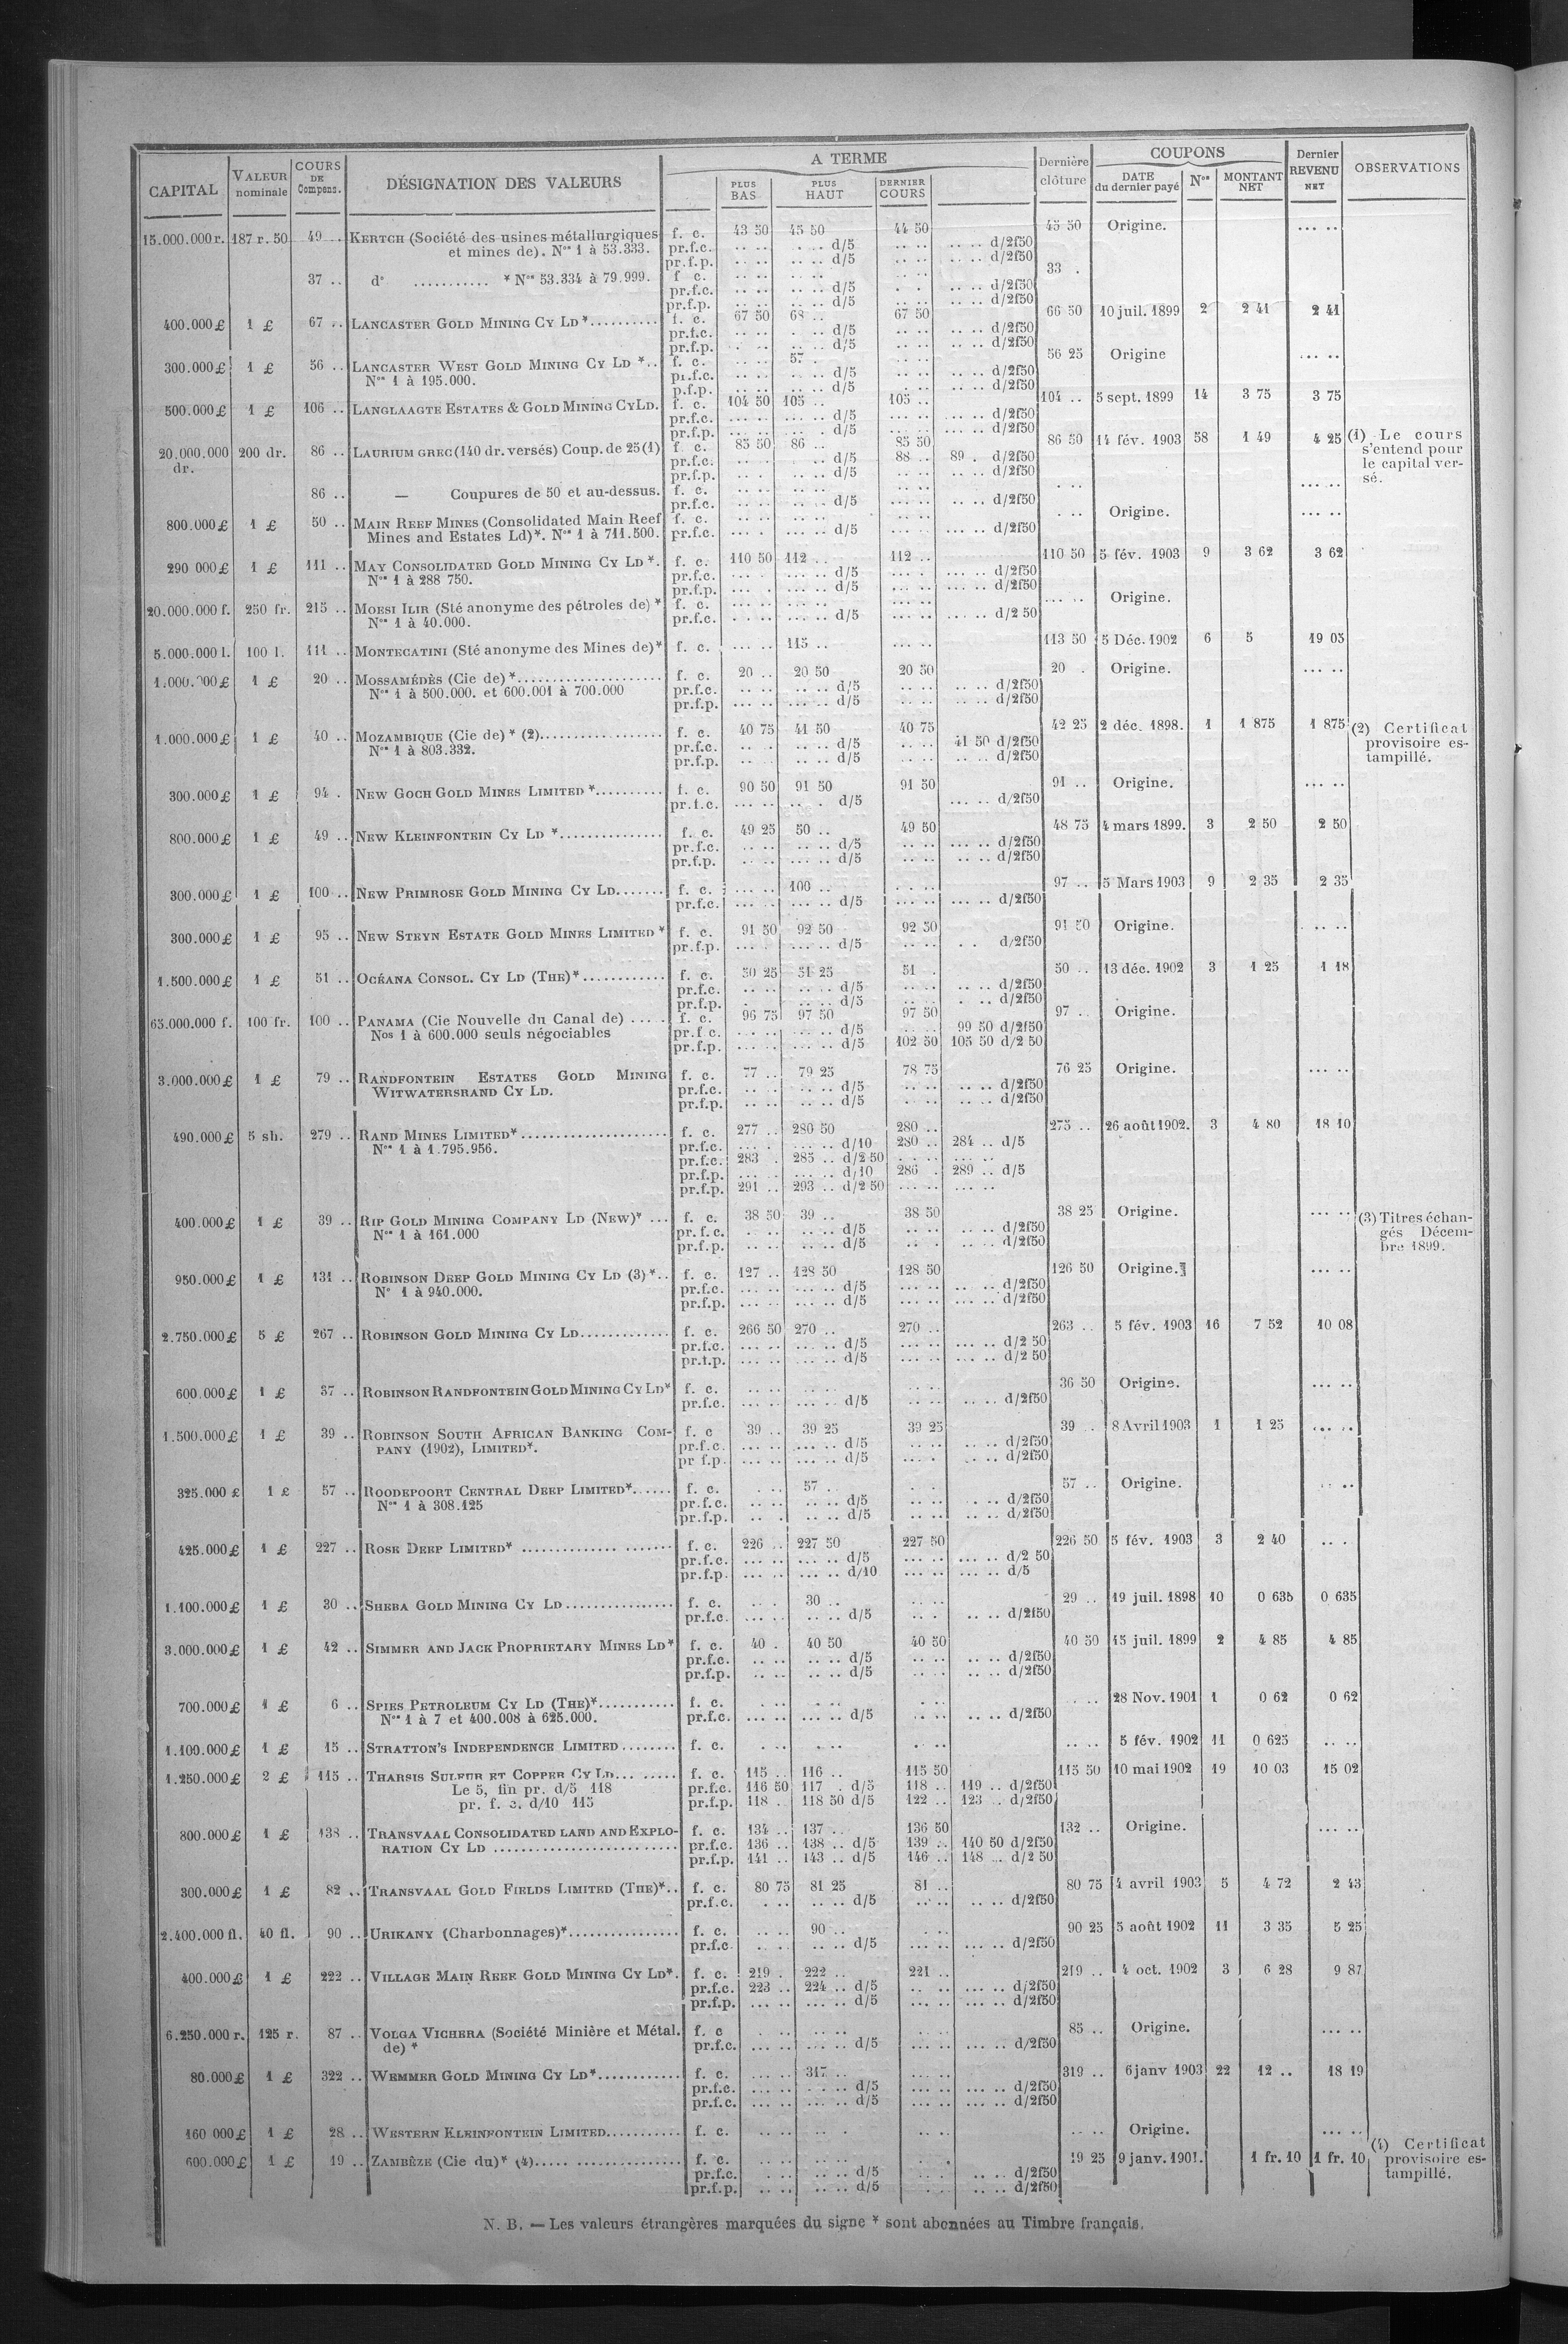 CAPITAL | VALEUR nominale | COURS DE Compens. | DÉSIGNATION DES VALEURS | A TERME | PLUS BAS | PLUS HAUT | DERNIER COURS | Dernière clôture | COUPONS | DATE du dernier payé | Nos | MONTANT NET | Dernier REVENU NET | OBSERVATIONS
15.000.000 r. 187 r. 50 49 .. KERTCH (Société des usines métallurgiques f. c. 43 50 45 50 44 50 45 50 Origine. ... ..
et mines de). Nos 1 à 53.333. pr.f.c. d/5 d/2f50
pr.f.p. d/5 d/2f50
37 .. d° ........... * Nos 53.334 à 79.999. f c. 33 .
pr.f.c. d/5 d/2f50
pr.f.p. d/5 d/2f50
400.000 £ 1 £ 67 .. LANCASTER GOLD MINING CY LD *.......... f. c. 67 50 68 .. 67 50 66 50 10 juil. 1899 2 2 41 2 41
pr.f.c. d/5 d/2f50
pr.f.p. d/5 d/2f50
300.000 £ 1 £ 56 .. LANCASTER WEST GOLD MINING CY LD *.. f. c. 57 . 56 25 Origine ... ..
Nos 1 à 195.000. pr.f.c. d/5 d/2f50
p.f.p. d/5 d/2f50
500.000 £ 1 £ 106 .. LANGLAAGTE ESTATES & GOLD MINING CY LD. f. c. 104 50 105 .. 105 .. 104 .. 5 sept. 1899 14 3 75 3 75
pr.f.c. d/5 d/2f50
pr.f.p. d/5 d/2f50
20.000.000 dr. 200 dr. 86 .. LAURIUM GREC (140 dr. versés) Coup. de 25 (1) f. c. 85 50 86 .. 85 50 86 50 14 fév. 1903 58 1 49 4 25 (1) Le cours
s'entend pour
le capital ver-
sé.
pr.f.c. d/5 88 .. 89 . d/2f50
pr.f.p. d/2f50
86 .. — Coupures de 50 et au-dessus. f. c. ... ..
pr.f.c. d/5 d/2f50
800.000 £ 1 £ 50 .. MAIN REEF MINES (Consolidated Main Reef f. c. Origine. ... ..
Mines and Estates Ld)*. Nos 1 à 711.500. pr.f.c. d/5 d/2f50
290 000 £ 1 £ 111 .. MAY CONSOLIDATED GOLD MINING CY LD *. f. c. 110 50 112 .. 112 .. 110 50 5 fév. 1903 9 3 62 3 62
Nos 1 à 288 750. pr.f.c. d/5 d/2f50
pr.f.p. d/5 d/2f50
20.000.000 f. 250 fr. 215 .. MOESI ILIR (Sté anonyme des pétroles de) * f. c. Origine.
Nos 1 à 40.000. pr.f.c. d/5 d/2 50
5.000.000 l. 100 l. 111 .. MONTECATINI (Sté anonyme des Mines de)* f. c. 115 .. 113 50 5 Déc. 1902 6 5 19 05
£ 1 £ 20 .. MOSSAMÉDÈS (Cie de) *..................... f. c. 20 .. 20 50 20 50 20 . Origine. ... ..
Nos 1 à 500.000. et 600.001 à 700.000 pr.f.c. d/5 d/2f50
pr.f.p. d/5 d/2f50
1.000.000 £ 1 £ 40 .. MOZAMBIQUE (Cie de) * (2).................. f. c. 40 75 41 50 40 75 42 25 2 déc. 1898. 1 1 875 1 875 (2) Certificat
provisoire es-
tampillé.
Nos 1 à 803.332. pr.f.c. d/5 41 50 d/2f50
pr.f.p. d/5 d/2f50
300.000 £ 1 £ 94 . NEW GOCH GOLD MINES LIMITED *.......... f. c. 90 50 91 50 91 50 91 .. Origine. ... ..
pr.f.c. d/5 d/2f50
800.000 £ 1 £ 49 .. NEW KLEINFONTEIN CY LD *............... f. c. 49 25 50 .. 49 50 48 75 4 mars 1899. 3 2 50 2 50
pr.f.c. d/5 d/2f50
pr.f.p. d/5 d/2f50
300.000 £ 1 £ 100 .. NEW PRIMROSE GOLD MINING CY LD....... f. c. 100 .. 97 .. 5 Mars 1903 9 2 35 2 35
pr.f.c. d/5 d/2f50
300.000 £ 1 £ 95 .. NEW STEYN ESTATE GOLD MINES LIMITED * f. c. 91 50 92 50 92 50 91 50 Origine.
pr.f.p. d/5 d/2f50
1.500.000 £ 1 £ 51 .. OCÉANA CONSOL. CY LD (THE)*............ f. c. 50 25 51 25 51 . 50 .. 13 déc. 1902 3 1 25 1 18
pr.f.c. d/5 d/2f50
pr.f.p. d/5 d/2f50
65.000.000 f. 100 fr. 100 .. PANAMA (Cie Nouvelle du Canal de) ..... f. c. 96 75 97 50 97 50 97 .. Origine.
Nos 1 à 600.000 seuls négociables pr.f c. d/5 99 50 d/2f50
pr.f.p. d/5 102 50 105 50 d/2 50
3.000.000 £ 1 £ 79 .. RANDFONTEIN ESTATES GOLD MINING f. c. 77 .. 79 25 78 75 76 25 Origine. ... ..
WITWATERSRAND CY LD. pr.f.c. d/5 d/2f50
pr.f.p. d/5 d/2f50
490.000 £ 5 sh. 279 .. RAND MINES LIMITED*..................... f. c. 277 .. 280 50 280 .. 275 .. 26 août 1902. 3 4 80 18 10
Nos 1 à 1.795.956. pr.f.c. d/10 280 .. 284 .. d/5
pr.f.c. 283 . 285 .. d/2 50
pr.f.p. d/10 286 . 289 .. d/5
pr.f.p. 291 .. 293 .. d/2 50
400.000 £ 1 £ 39 .. RIP GOLD MINING COMPANY LD (NEW)* ... f. c. 38 50 39 .. 38 50 38 25 Origine. ... .. (3) Titres échan-
gés Décem-
bre 1899.
Nos 1 à 161.000 pr.f.c. d/5 d/2f50
pr.f.p. d/5 d/2f50
950.000 £ 1 £ 131 .. ROBINSON DEEP GOLD MINING CY LD (3) *.. f. c. 127 .. 128 50 128 50 126 50 Origine. ... ..
N° 1 à 940.000. pr.f.c. d/5 d/2f50
pr.f.p. d/5 d/2f50
2.750.000 £ 5 £ 267 .. ROBINSON GOLD MINING CY LD............. f. c. 266 50 270 .. 270 .. 263 .. 5 fév. 1903 16 7 52 10 08
pr.f.c. d/5 d/2 50
pr.f.p. d/5 d/2 50
600.000 £ 1 £ 37 .. ROBINSON RANDFONTEIN GOLD MINING CY LD* f. c. 36 50 Origine. ... ..
pr.f.c. d/5 d/2f50
1.500.000 £ 1 £ 39 .. ROBINSON SOUTH AFRICAN BANKING COM- f. c 39 .. 39 25 39 25 39 . 8 Avril 1903 1 1 25 ... ..
PANY (1902), LIMITED*. pr.f.c. d/5 d/2f50
pr f.p. d/5 d/2f50
325.000 £ 1 £ 57 .. ROODEPOORT CENTRAL DEEP LIMITED*...... f. c. 57 .. 57 .. Origine.
Nos 1 à 308.125 pr.f.c. d/5 d/2f50
pr.f.p. d/5 d/2f50
425.000 £ 1 £ 227 .. ROSE DEEP LIMITED* ..................... f. c. 226 .. 227 50 227 50 226 50 5 fév. 1903 3 2 40
pr.f.c. d/5 d/2 50
pr.f.p. d/10 d/5
1.100.000 £ 1 £ 30 .. SHEBA GOLD MINING CY LD................ f. c. 30 .. 29 .. 19 juil. 1898 10 0 635 0 635
pr.f.c. d/5 d/2f50
3.000.000 £ 1 £ 42 .. SIMMER AND JACK PROPRIETARY MINES LD* f. c. 40 . 40 50 40 50 40 50 15 juil. 1899 2 4 85 4 85
pr.f.c. d/5 d/2f50
pr.f.p. d/5 d/2f50
700.000 £ 1 £ 6 .. SPIES PETROLEUM CY LD (THE)*........... f. c. 28 Nov. 1901 1 0 62 0 62
Nos 1 à 7 et 400.008 à 625.000. pr.f.c. d/5 d/2f50
1.100.000 £ 1 £ 15 .. STRATTON'S INDEPENDENCE LIMITED ........ f. c. 5 fév. 1902 11 0 625
1.250.000 £ 2 £ 115 .. THARSIS SULFUR ET COPPER CY LD... ..... f. c. 115 .. 116 .. 115 50 115 50 10 mai 1902 19 10 03 15 02
Le 5, fin pr. d/5 118 pr.f.c. 116 50 117 . d/5 118 .. 119 .. d/2f50
pr. f. c. d/10 115 pr.f.p. 118 .. 118 50 d/5 122 .. 123 .. d/2f50
800.000 £ 1 £ 138 .. TRANSVAAL CONSOLIDATED LAND AND EXPLO- f. c. 134 .. 137 .. 136 50 132 .. Origine. ... ..
RATION CY LD .......................... pr.f.c. 136 .. 138 .. d/5 139 .. 140 50 d/2f50
pr.f.p. 141 .. 143 .. d/5 146 .. 148 .. d/2 50
300.000 £ 1 £ 82 .. TRANSVAAL GOLD FIELDS LIMITED (THE)*.. f. c. 80 75 81 25 81 .. 80 75 4 avril 1903 5 4 72 2 43
pr.f.c. d/5 d/2f50
2.400.000 fl. 40 fl. 90 .. URIKANY (Charbonnages)*................ f. c. 90 .. 90 25 5 août 1902 11 3 35 5 25
pr.f.c. d/5 d/2f50
400.000 £ 1 £ 222 .. VILLAGE MAIN REEF GOLD MINING CY LD*. f. c. 219 . 222 .. 221 .. 219 .. 4 oct. 1902 3 6 28 9 87
pr.f.c. 223 .. 224 .. d/5 d/2f50
pr.f.p. d/5 d/2f50
6.250.000 r. 125 r. 87 .. VOLGA VICHERA (Société Minière et Métal. f. c 85 .. Origine. ... ..
de) * pr.f.c. d/5 d/2f50
80.000 £ 1 £ 322 .. WEMMER GOLD MINING CY LD*............ f. c. 317 .. 319 .. 6 janv 1903 22 12 .. 18 19
pr.f.c. d/5 d/2f50
pr.f.c. d/5 d/2f50
160 000 £ 1 £ 28 .. WESTERN KLEINFONTEIN LIMITED........... f. c. Origine. ... ..
600.000 £ 1 £ 19 .. ZAMBÈZE (Cie du)* (4)..... ................ f. c. 19 25 9 janv. 1901. 1 fr. 10 1 fr. 10 (4) Certificat
provisoire es-
tampillé.
pr.f.c. d/5 d/2f50
pr.f.p. d/5 d/2f50
N. B. — Les valeurs étrangères marquées du signe * sont abonnées au Timbre français.